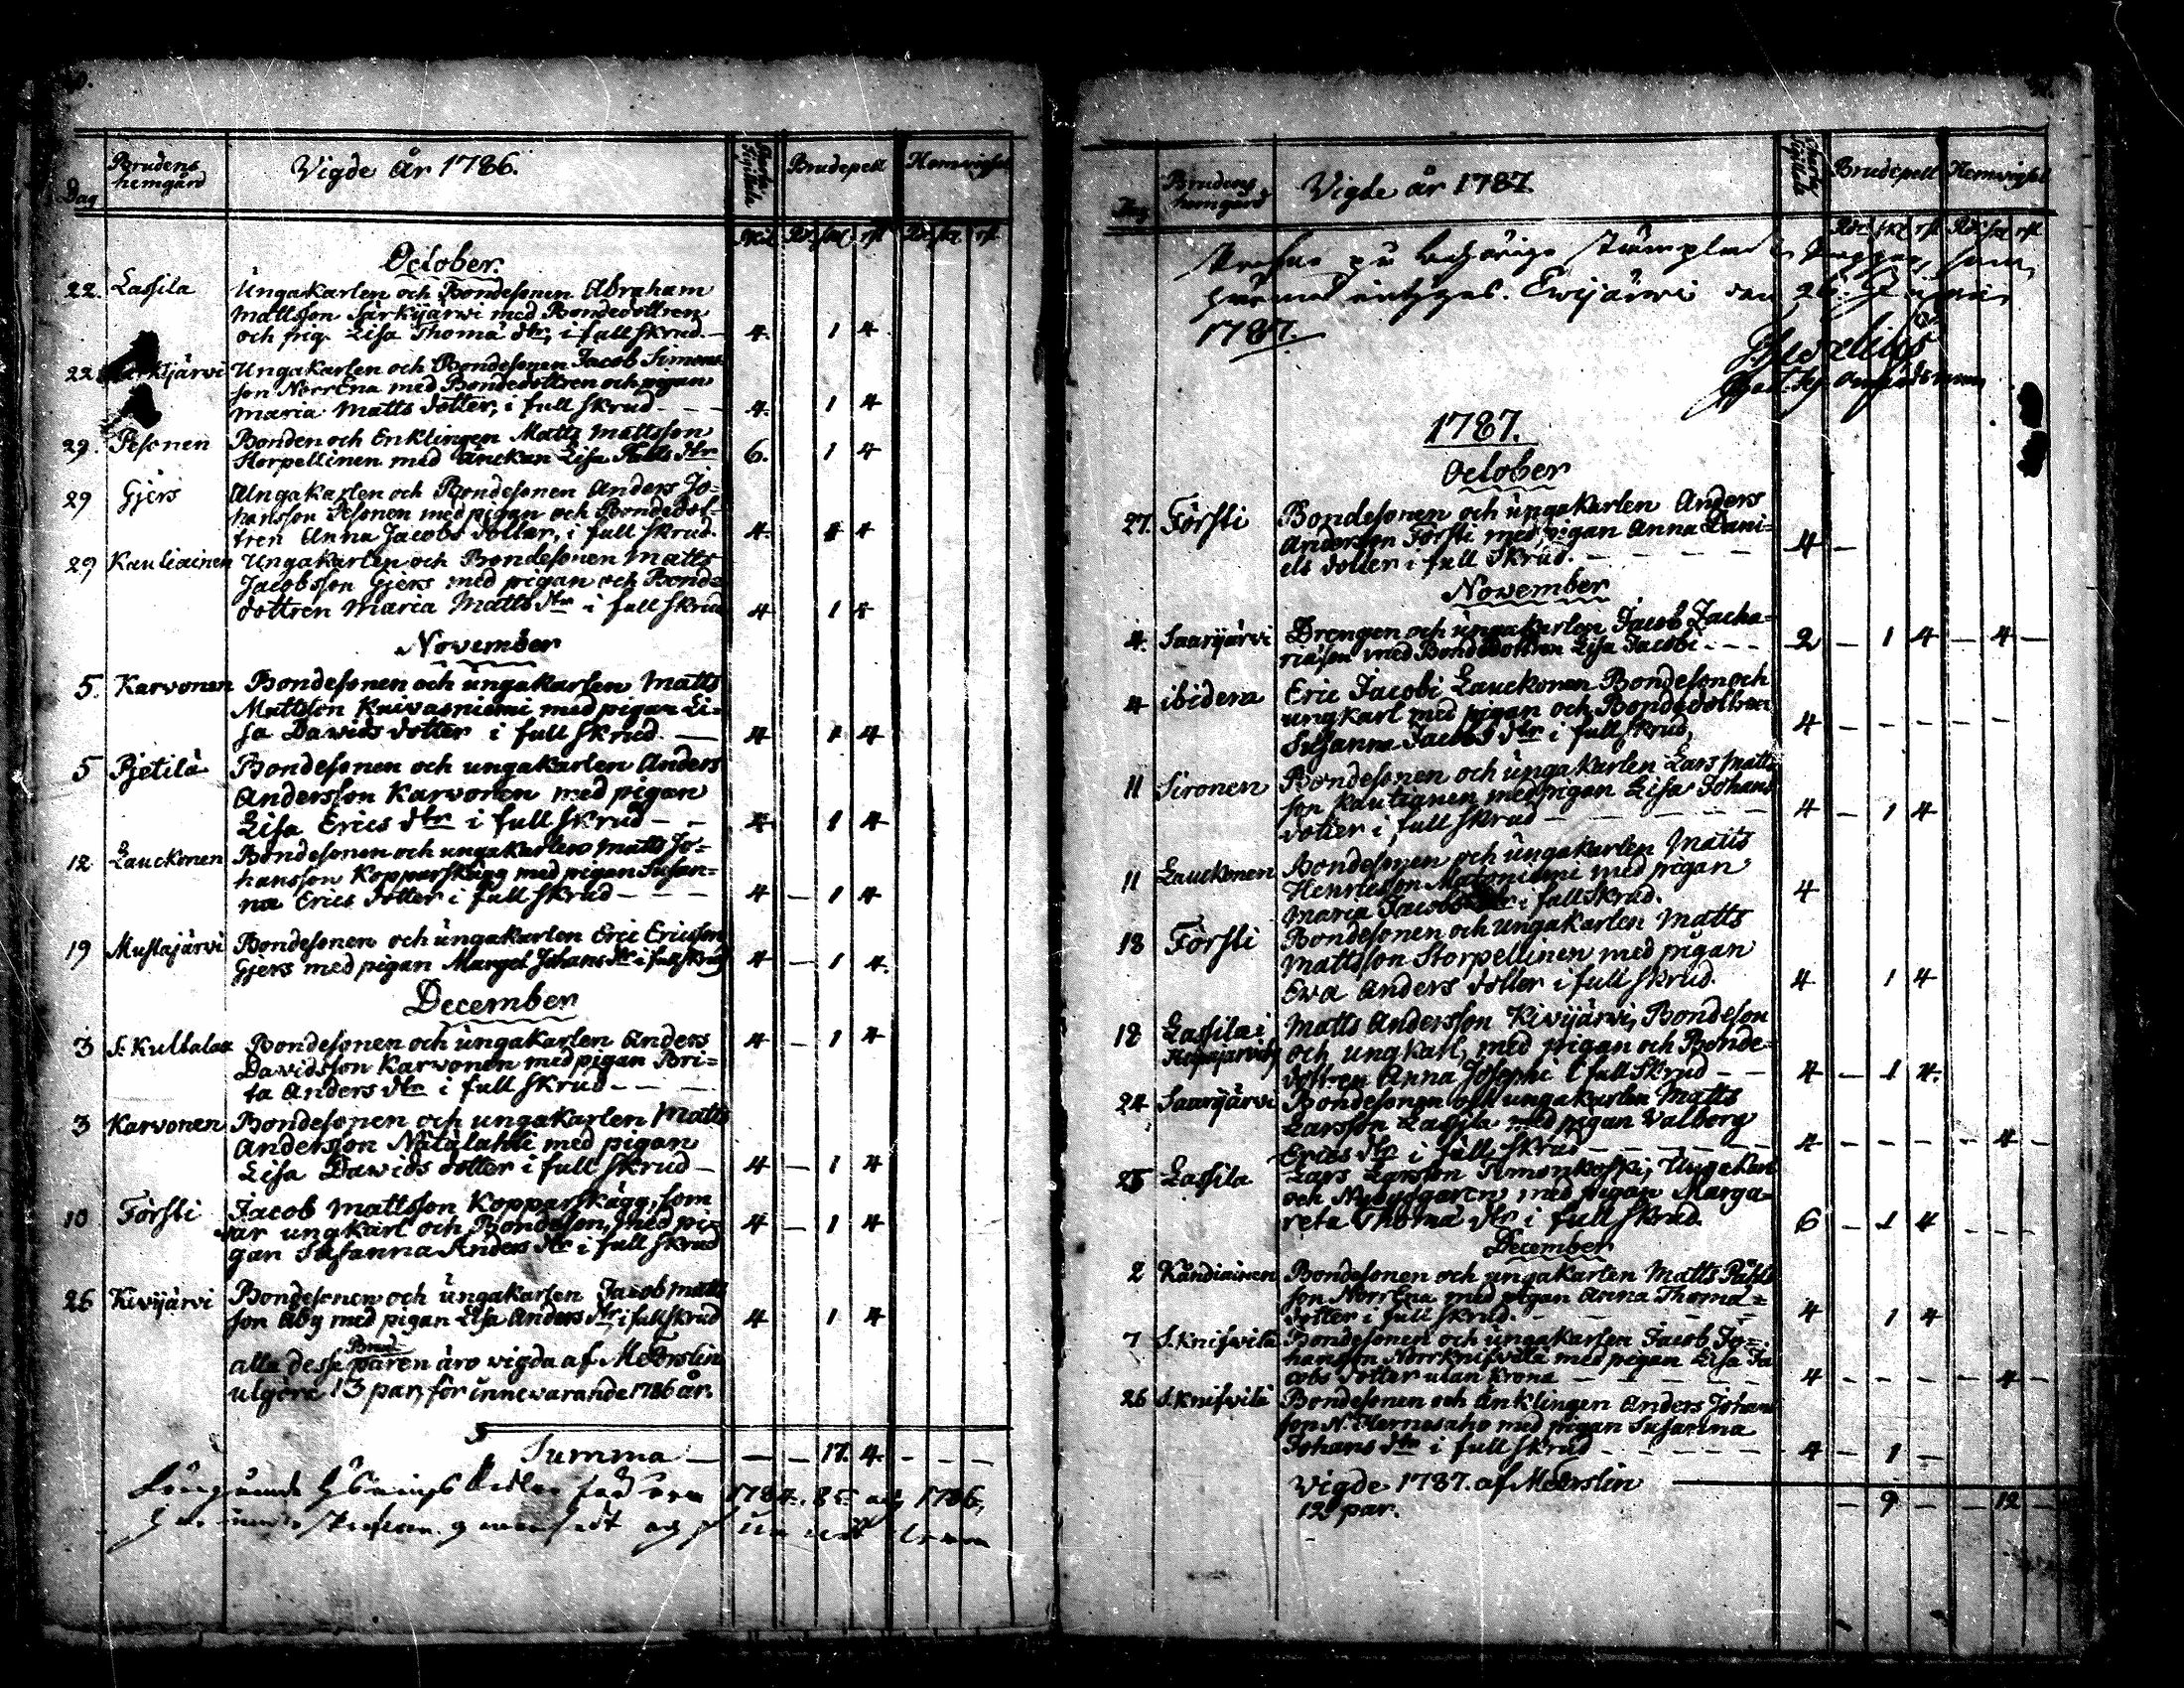 Dag
Brudens
hemgård
Vigde År 1786.
Charta
Sigillata
Brudepell
Hemvigsel
October.
22. Lassila
Ungakarlen och Bondesonen Abraham
Mattsson Särkijärwi med Bondedottren
och pig. Lisa Thomæ dtr, i full skrud. 4. 1 4
22
Ungakarlen och Bondesonen Jacob Simons
son Norrena med Bondedottren och pigan
Maria Matts dotter, i full skrud 4. 1 4
29. Pesonen
Bonden och Enklingen Matts Mattsson
Storpellinen med änckan Lisa dtr 6. 1 4
29 Gjers
Ungakarlen och Bondesonen Anders Jo=
hansson Pesonen med pigan och Bondedot-
tren Anna Jacobs dotter, i full skrud. 4. 1 4
29 Kauliainen
Ungakarlen och Bondesonen Matts
Jacobsson Gjers med pigan och Bonde
dottren Maria Matts dtr i full skrud 4 1 4
November
5. Karvonen
Bondesonen och ungakarlen Matts
Mattson Knivasniemi med pigan Li-
sa Davids dotter i full skrud. 4 1 4
5 Pjetilä
Bondesonen och ungakarlen Anders
Andersson Karvonen med pigan
Lisa Erics dtr i full skrud - - 4 1 4
12 Lauckonen
Bondesonen och ungakarlen Matts Jo=
hansson Kopparskägg med pigan Susan=
na Erics dotter i full skrud - - - 4 - 1 4
19 Mustajärvi
Bondesonen och ungakarlen Eric Ericsson
Gjers med pigan Marget Johans dtr i full skrud 4 - 1 4.
December
3 S. Kultalax
Bondesonen och ungakarlen Anders 4 - 1 4
Davidsson Karvonen med pigan Bri=
ta Anders dtr i full skrud - - -
3 Karvonen
Bondesonen och ungakarlen Matts
Andersson Nätglahti med pigan
Lisa Dawids dotter i full skrud - 4 - 1 4
10 Försti
Jacob Mattsson Kopparskägg, som
är ungkarl och Bondeson, med pi= 4 - 1 4
gan Susanna Anders dtr i full skrud
26 Kivijärvi
Bondesonen och ungakarlen Jacob Matts
son Åby med pigan Lisa Anders dtr, i full skrud 4 1 4
Brud
alla desse paren äro vigda af M. Eorslin
utgöra 13 par, för innevarande 1786 år.
Summa - - - 17. 4. - - -
1784. 85 och 1786,
Brudens
hemgård
Vigde år 1787.
Charta
Sigillata
Brudepell
Hemvigsel
Rdr skl rst Rdr skl rst
Ewijärwi den 26.
1787.
1787.
October
27. Försti
Bondesonen och ungakarlen Anders
Andersson Försti med pigan Anna Dani=
els dotter i full skrud. - - - - 4 -
November
4. Saarijärvi
Drengen och ungakarlen Jacob Zacha=
riæson med Bondedottren Lisa Jacobi - - - 2 - 1 4 - 4 -
4 ibidem
Eric Jacobi Lauckonen Bondeson och
ungkarl med pigan och Bondedottren
Susanna Jacobs dtr i full skrud, 4 - - - - -
11 Sironen
Bondesonen och ungakarlen Lars Matts
son Kautianen med pigan Lisa Johans
dotter i full skrud - - - 4 - 1 4
11 Lauckonen
Bondesonen och ungakarlen Matts
Henricsson med pigan
Maria Jacobs dtr i full skrud. 4
18 Försti
Bondesonen och ungakarlen Matts
Mattsson Storpellinen med pigan
Ewa Anders dotter i full skrud. 4 1 4
18 Lassila i
Matts Andersson Kivijärvi, Bondeson
och ungkarl, med pigan och Bonde=
dottren Anna Josephi i full skrud - - 4 - 1 4.
24 Saarijärvi
Bondesonen och ungakarlen Matts
Larsson Lassila med pigan Valborg
Erics dtr i full skrud - - - - 4 - - - - 4 -
25 Lassila
Lars Larsson Timonkoski, Ungakarl
och Nybyggaren med pigan Marga=
reta Thomæ dtr i full skrud. 6 - 1 4 - - -
December
2 Kändiainen
Bondesonen och ungakarlen Matts Påhls
son Norrena med pigan Anna Thomæ=
dotter i full skrud. 4 1 4
7 S. Knifvilä
Bondesonen och ungakarlen Jacob Jo=
hansson Norrknifvilä med pigan Lisa Ja
cobs dotter utan krona - - - - 4 - - - - 4 -
26 S. Knifvilä
Bondesonen och Änklingen Anders Johans
son N. Hernesaho med pigan Susanna
Johans dtr i full skrud - - - 4 - 1 -
Vigde 1787. af M. Eorslin
12 par. - 9 - - 12 -